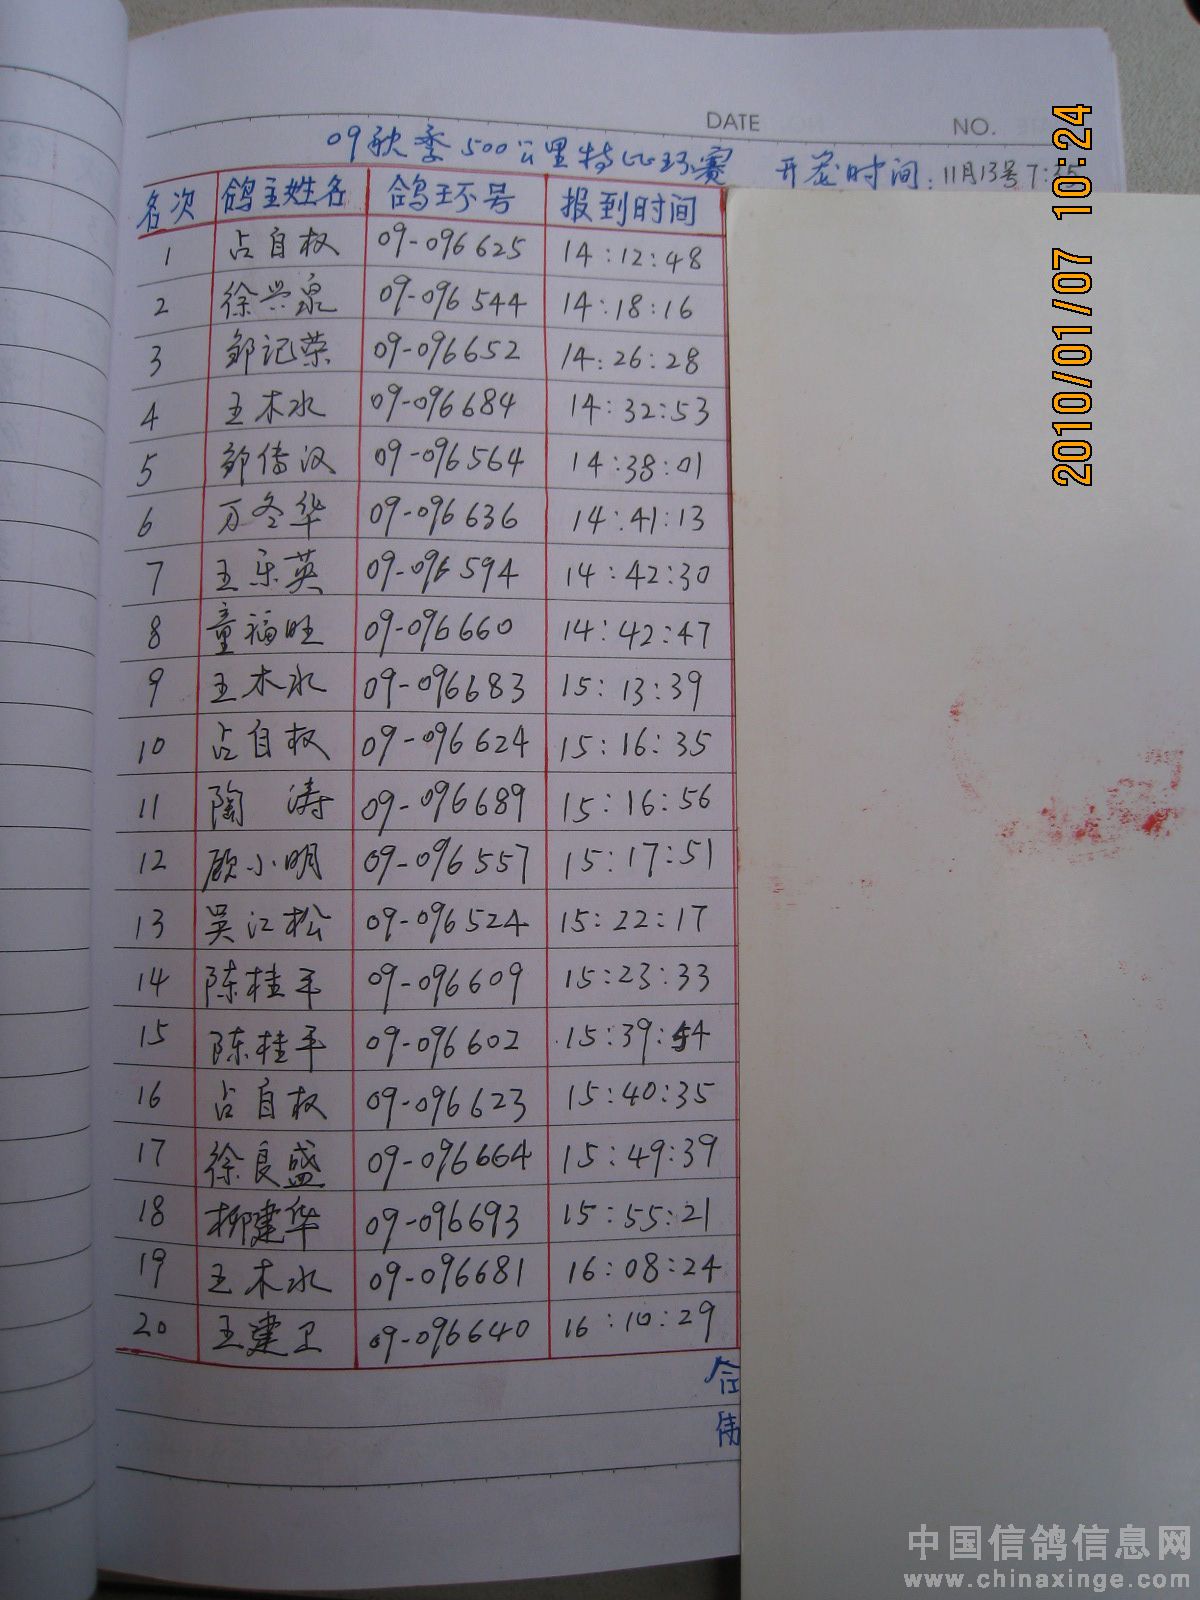 DATE NO.
09秋季500公里特比环赛 开笼时间:11月13号7:35
名次 鸽主姓名 鸽环号 报到时间
1 占自权 09-096625 14:12:48
2 徐兴泉 09-096544 14:18:16
3 邹记荣 09-096652 14:26:28
4 王木水 09-096684 14:32:53
5 邹传汉 09-096564 14:38:01
6 万冬华 09-096636 14:41:13
7 王乐英 09-096594 14:42:30
8 童福旺 09-096660 14:42:47
9 王木水 09-096683 15:13:39
10 占自权 09-096624 15:16:35
11 陶涛 09-096689 15:16:56
12 顾小明 09-096557 15:17:51
13 吴江松 09-096524 15:22:17
14 陈桂平 09-096609 15:23:33
15 陈桂平 09-096602 15:39:54
16 占自权 09-096623 15:40:35
17 徐良盛 09-096664 15:49:39
18 柳建华 09-096693 15:55:21
19 王木水 09-096681 16:08:24
20 王建卫 09-096640 16:10:29
2010/01/07 10:24
中国信鸽信息网
www.chinaxinge.com